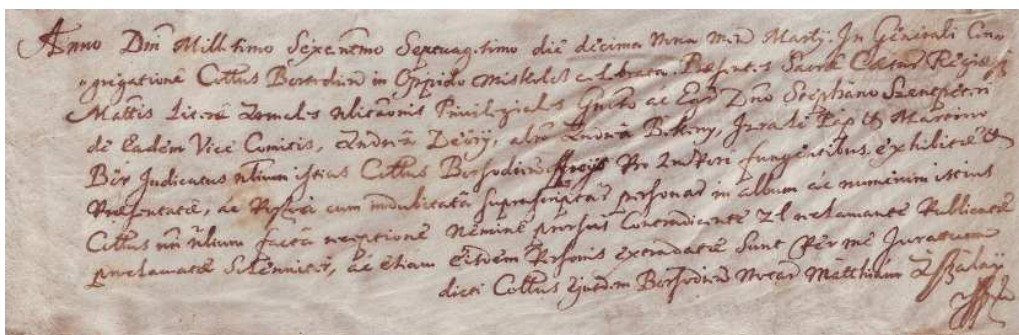 Anno Dni Millesimo Sexcentesimo Septuagesimo die decima Nona Mens Martij. In Generali Con
gregatione Cottus Borsodien in Oppido Miskolcz celebrata. Praesentes Sacrae Caesar Regiae
Mattis Literae Armales Nlitaonis Privilegiales Groso ac Egr Dno Stephano Szentpeteri
de Eadem Vice Comitis, Andrea Devy, alr Andrea Bekeny, Jurati et Martino
Bir Judicatus nlium istius Cottus Borsodien Pro fungentibus exhibitae et
Praesentatae, ac cum indubitata suprascriptar personar in album ac numerum istius
Cottus nlium facta receptione Nemine prorsus Contradicente Vel reclamante Publicatae
proclamatae Solenniter, ac etiam eisdem Personis extradatae Sunt Per me Juratum
dicti Cottus Ejusdem Borsodien Notar Matthiam Szalay